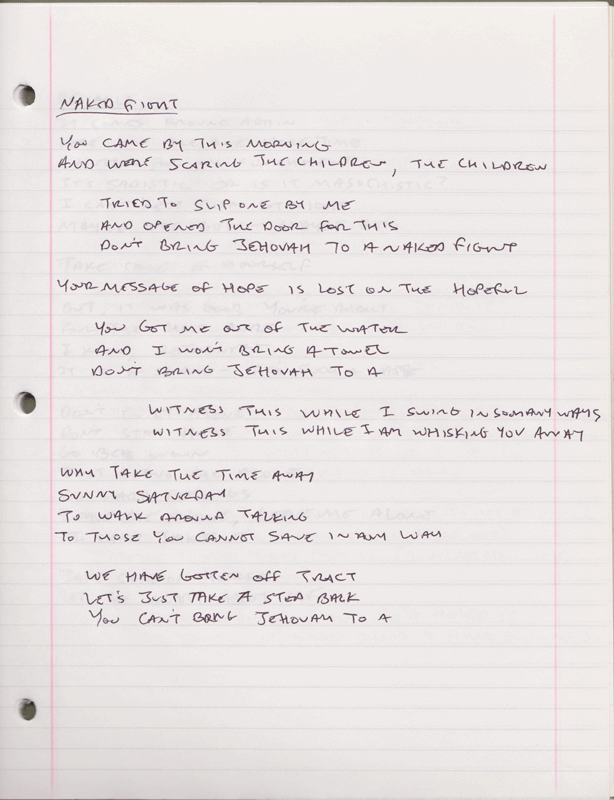 NAKED FIGHT
YOU CAME BY THIS MORNING
AND WERE SCARING THE CHILDREN, THE CHILDREN
TRIED TO SLIP ONE BY ME
AND OPENED THE DOOR FOR THIS
DON'T BRING JEHOVAH TO A NAKED FIGHT
YOUR MESSAGE OF HOPE IS LOST ON THE HOPEFUL
YOU GOT ME OUT OF THE WATER
AND I WON'T BRING A TOWEL
DON'T BRING JEHOVAH TO A
WITNESS THIS WHILE I SWING IN SO MANY WAYS
WITNESS THIS WHILE I AM WHISKING YOU AWAY
WHY TAKE THE TIME AWAY
SUNNY SATURDAY
TO WALK AROUND TALKING
TO THOSE YOU CANNOT SAVE IN ANY WAY
WE HAVE GOTTEN OFF TRACT
LET'S JUST TAKE A STEP BACK
YOU CAN'T BRING JEHOVAH TO A